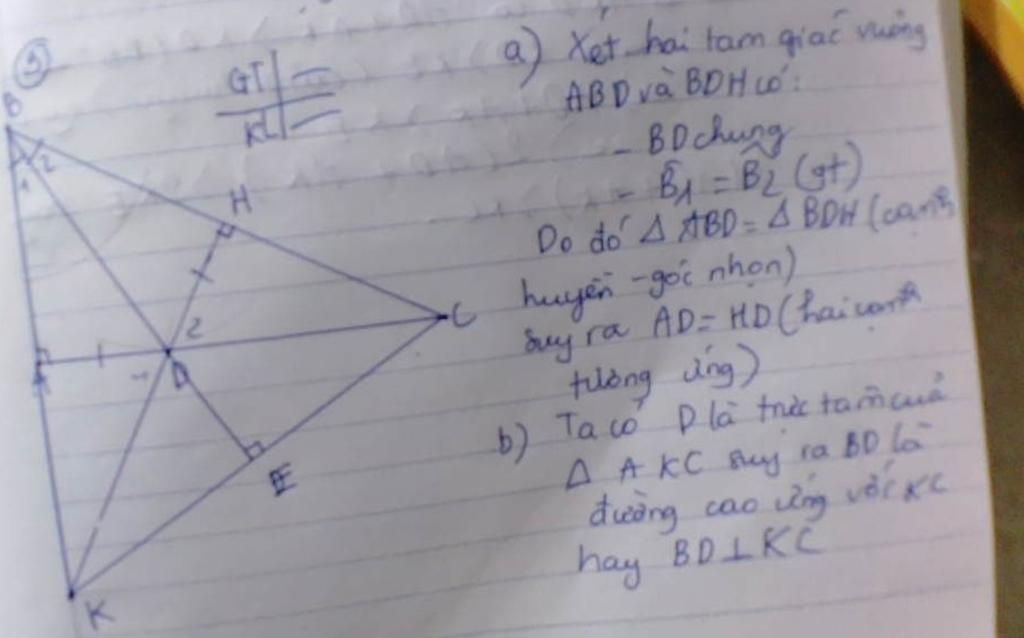 3
GT
KL
a) Xét hai tam giác vuông
ABD và BDH có:
- BD chung
- B̂1 = B̂2 (gt)
Do đó Δ ABD = Δ BDH (cạnh
huyền - góc nhọn)
suy ra AD = HD (hai cạnh
tương ứng)
b) Ta có D là trực tâm của
Δ AKC suy ra BD là
đường cao ứng với KC
hay BD ⊥ KC
B
1 2
H
2
C
A
1
D
E
K